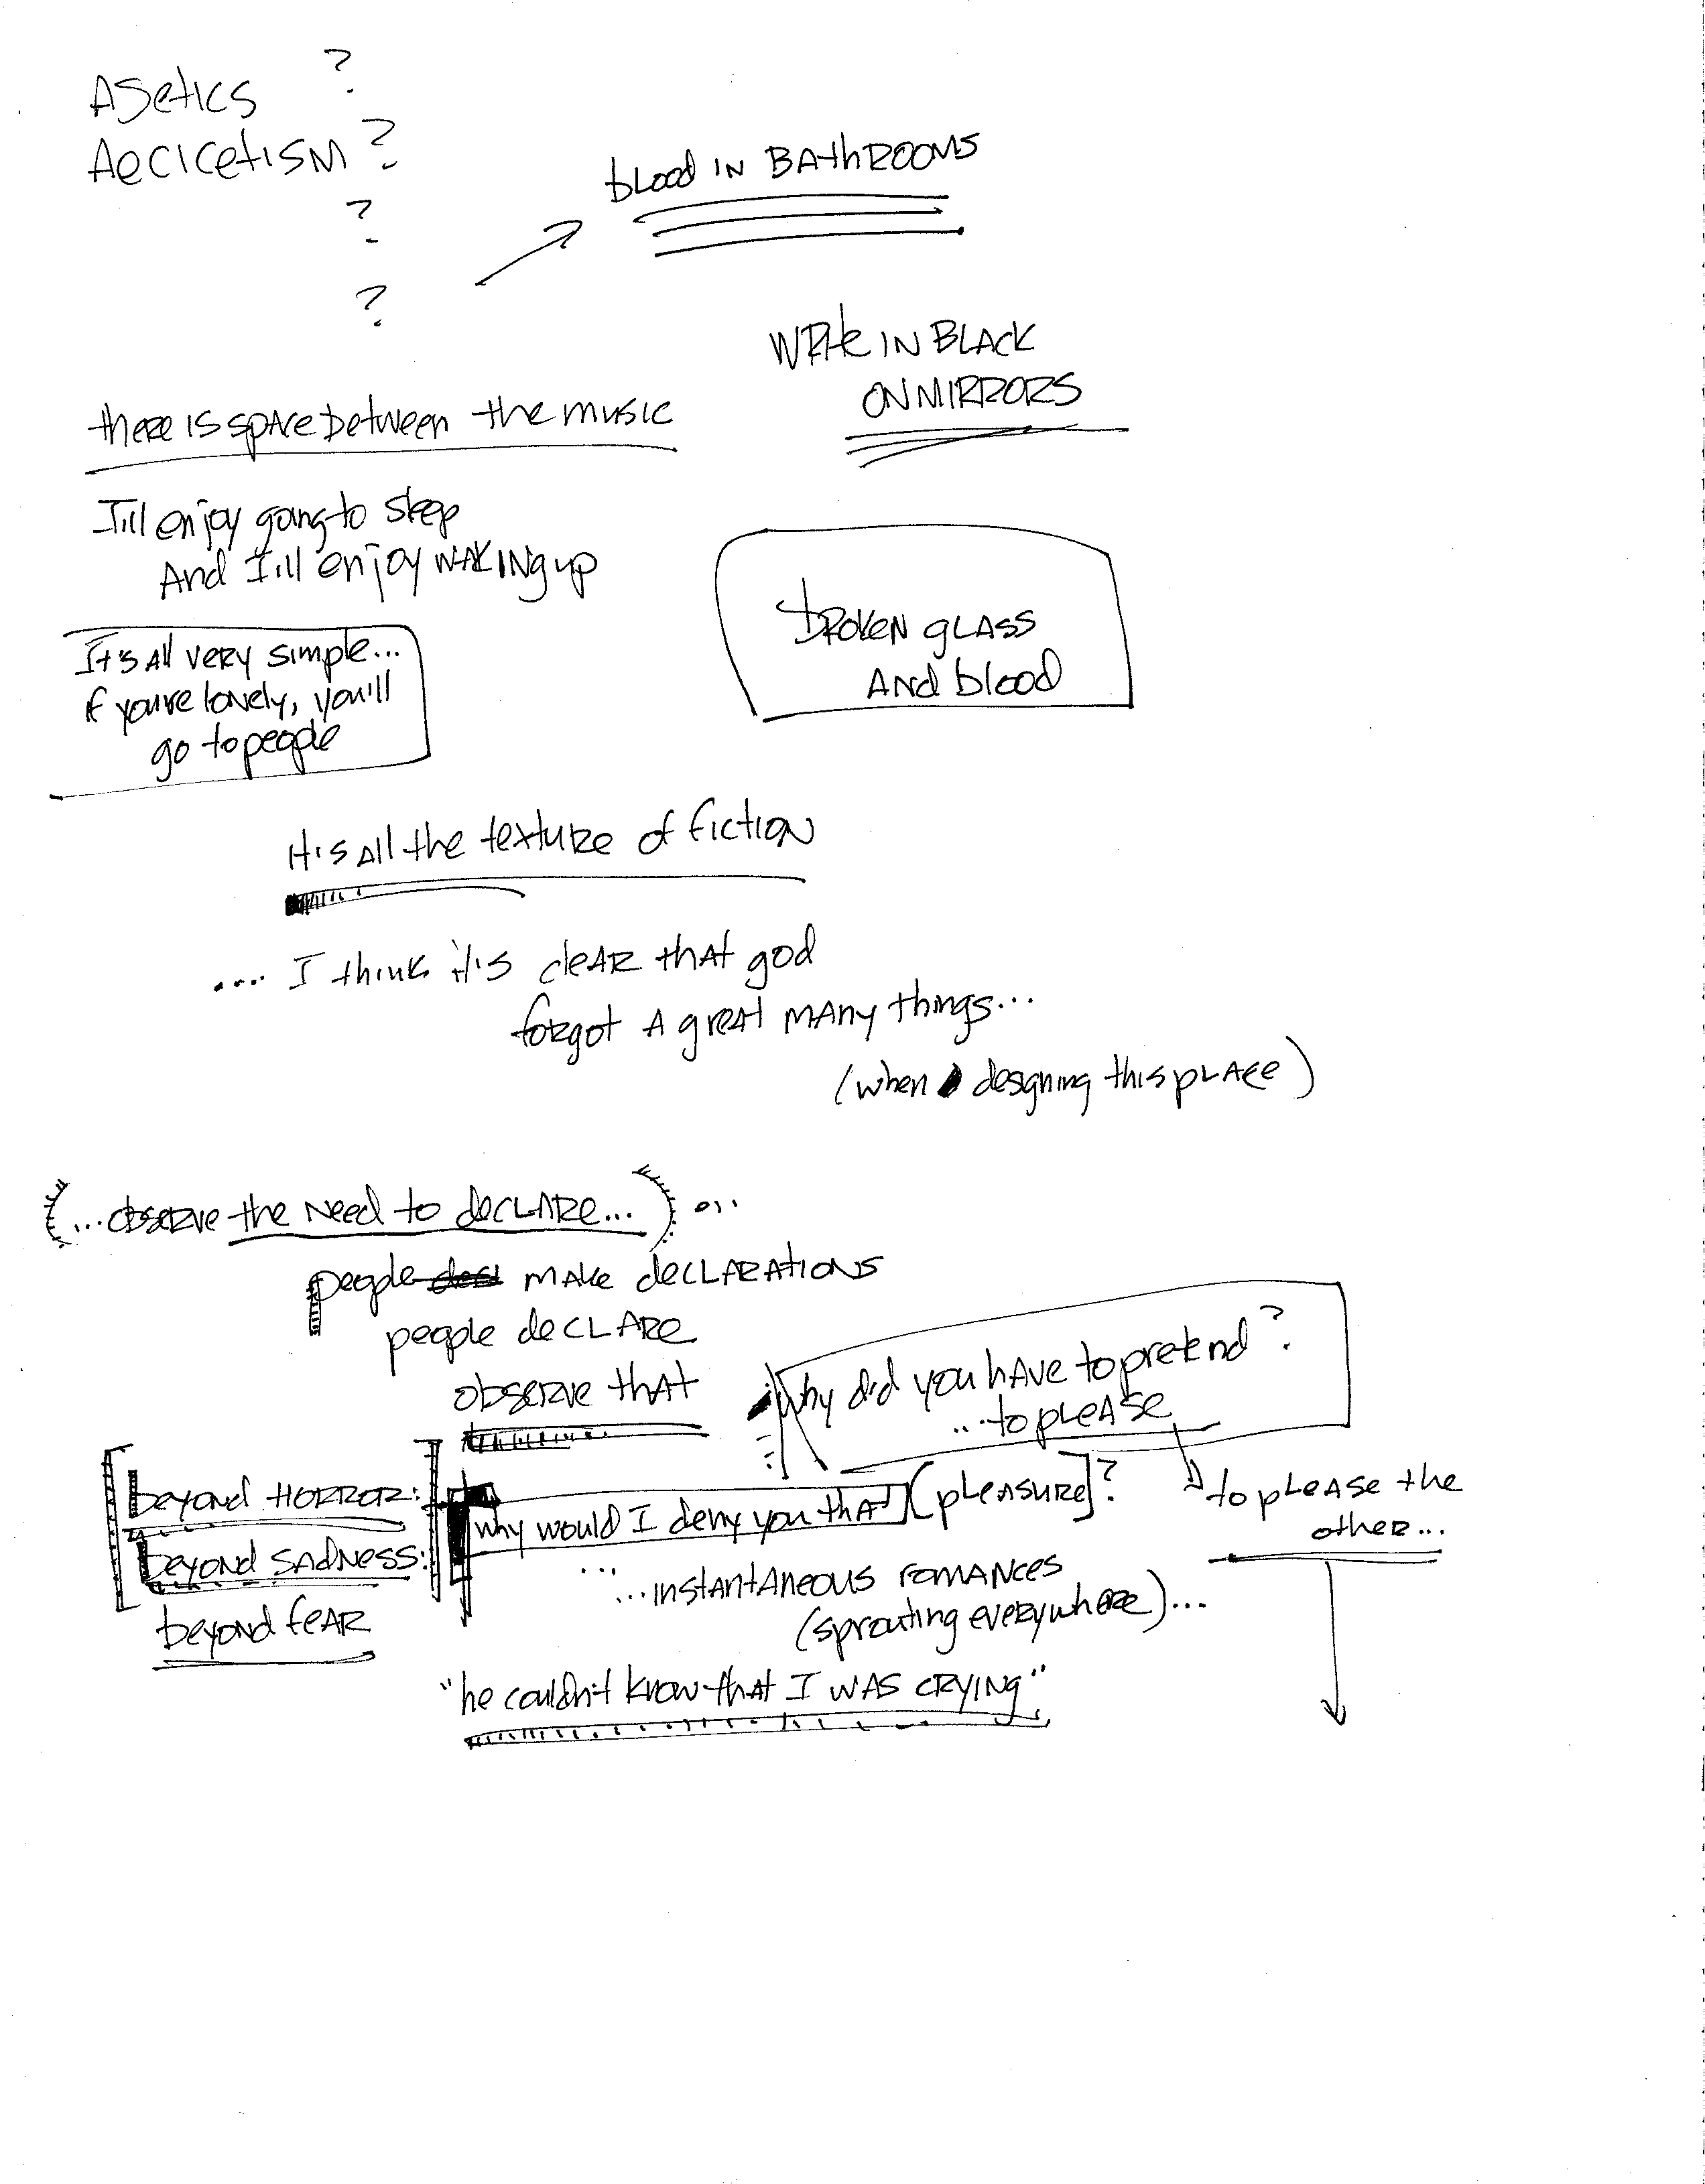 Asetics ?
Aecicetism ?
?
?
blood in Bathrooms
write in Black
on mirrors
there is space between the music
I'll enjoy going to sleep
And I'll enjoy waking up
It's all very simple...
if you're lonely, you'll
go to people
broken glass
And blood
it's all the texture of fiction
.... I think it's clear that god
forgot a great many things...
(when designing this place)
(...observe the need to declare...) ...
people make declarations
people declare
observe that
why did you have to pretend?
...to please
to please the
other...
beyond Horror:
beyond sadness:
beyond fear
why would I deny you that (pleasure]?
... ...instantaneous romances
(sprouting everywhere)...
"he couldn't know that I was crying"